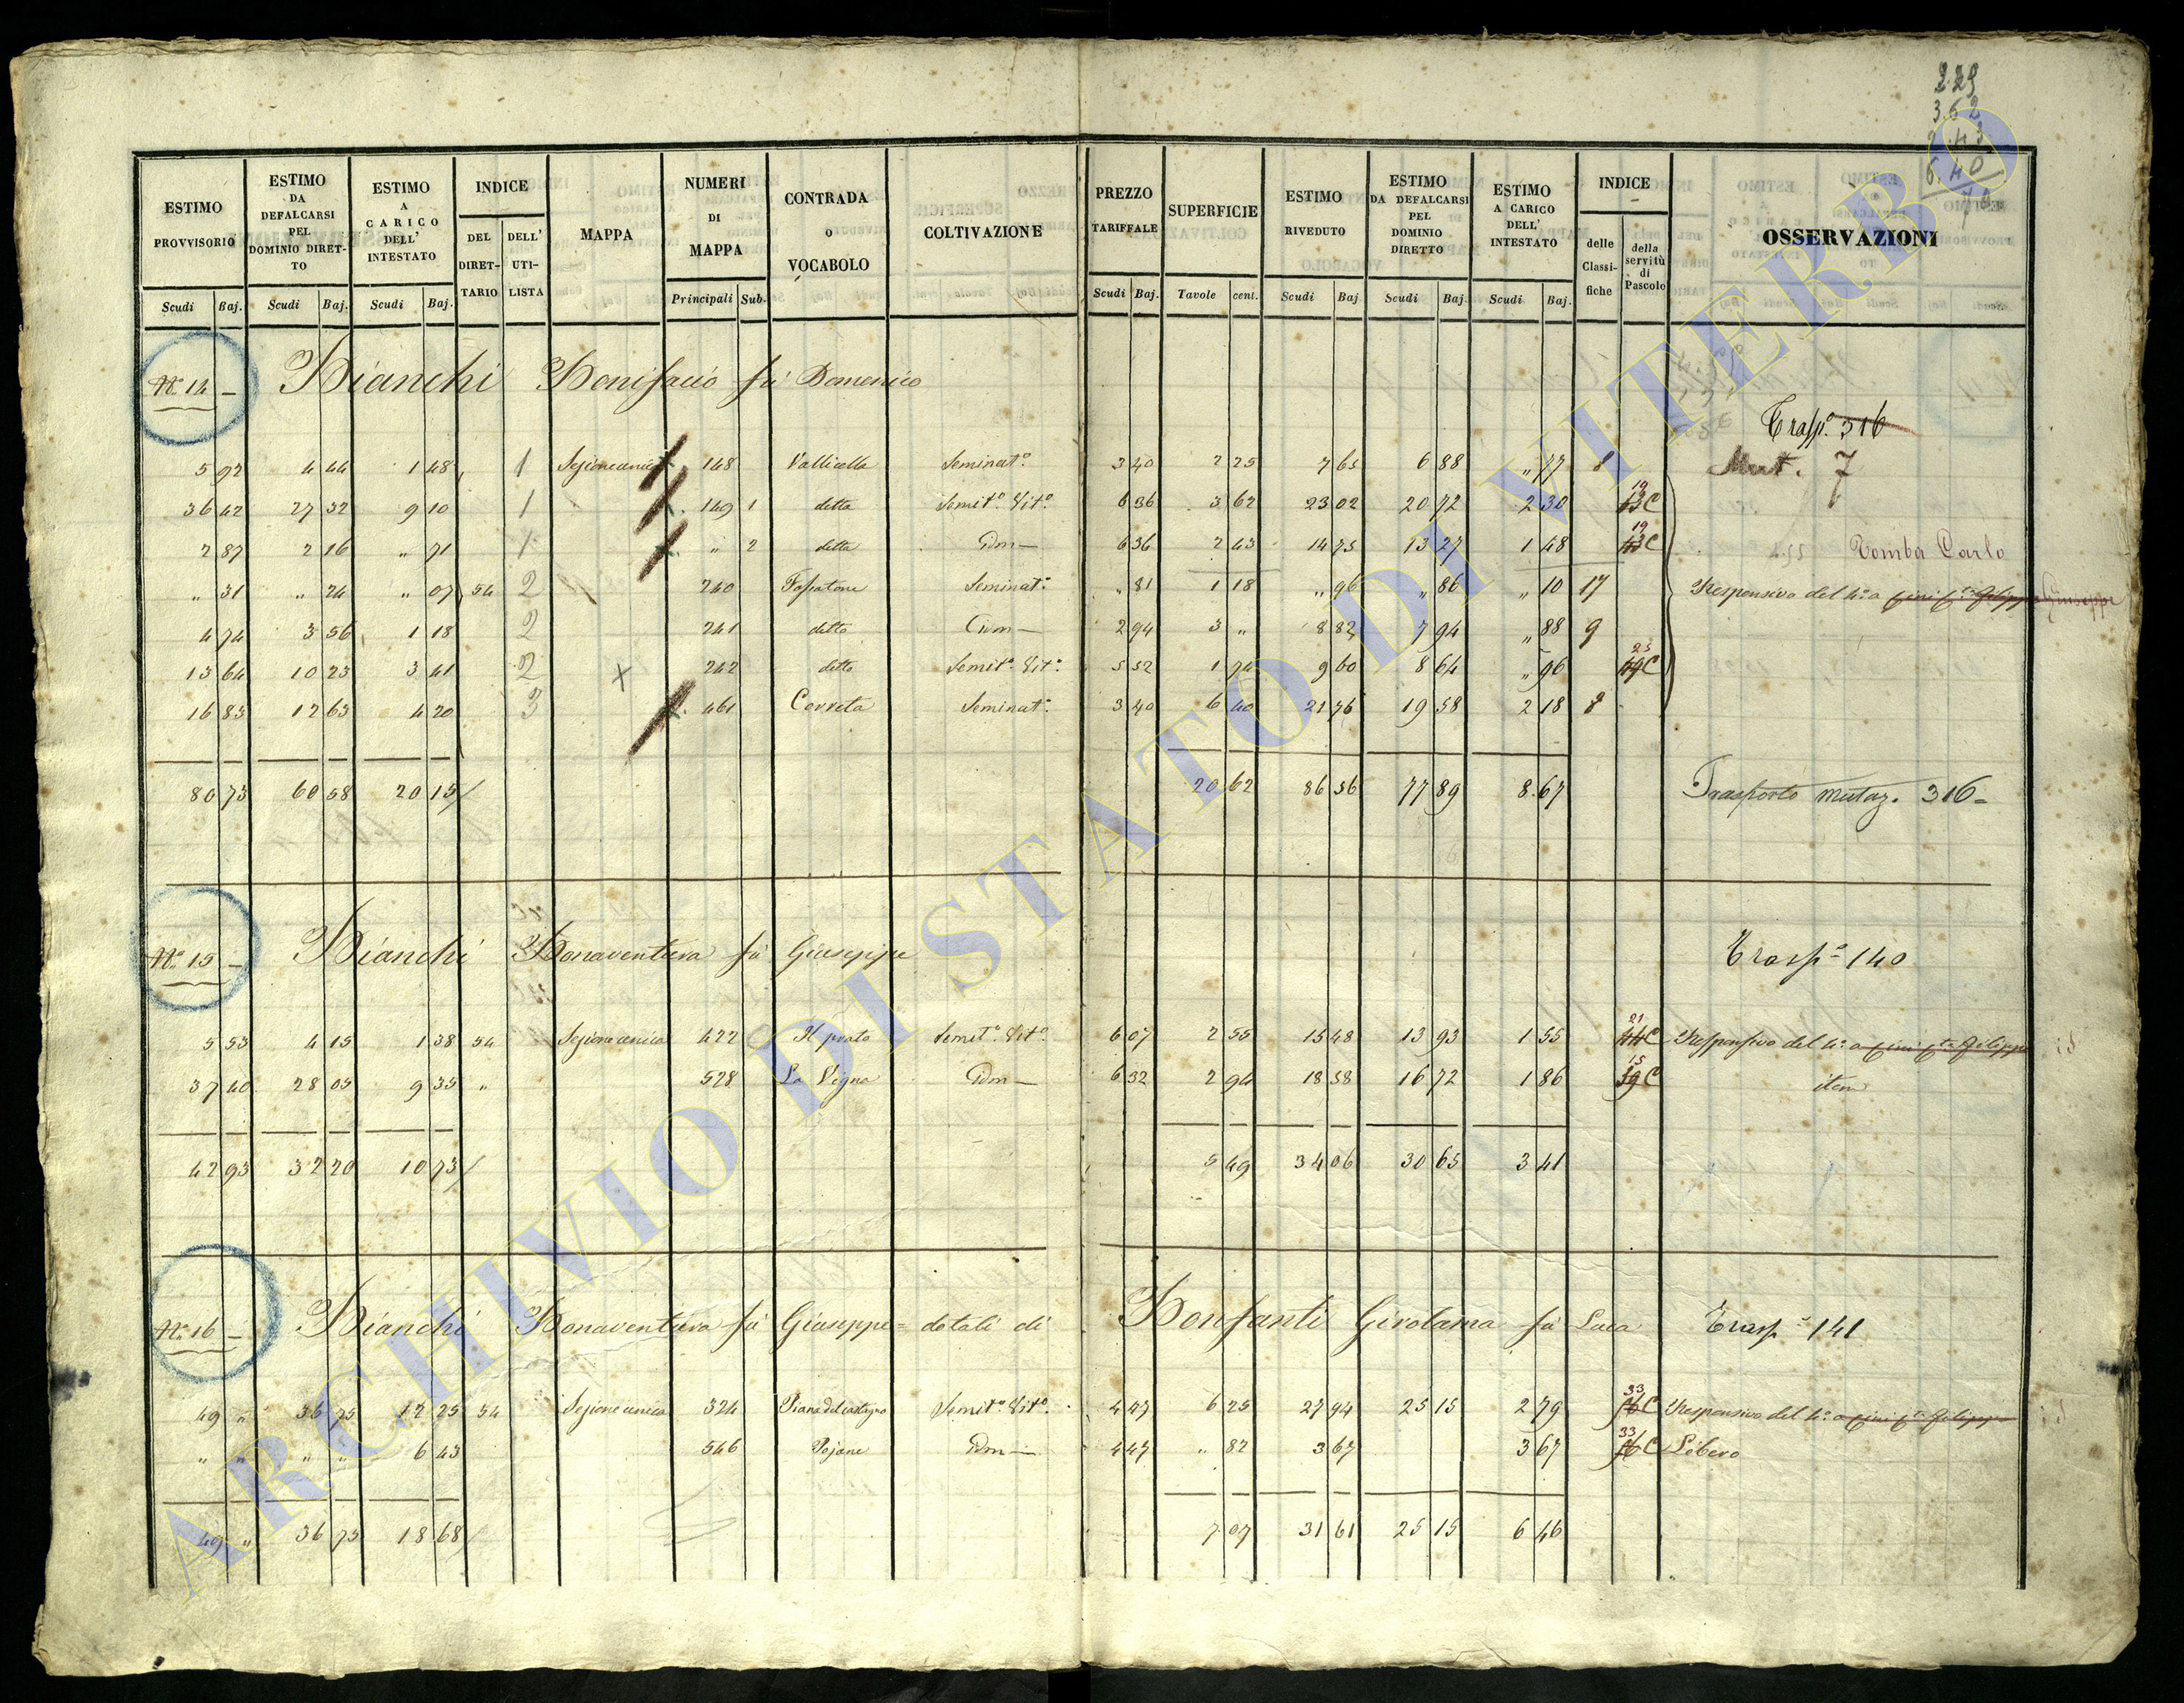 229
3.62
2.43
6.40
ESTIMO PROVVISORIO | ESTIMO DA DEFALCARSI PEL DOMINIO DIRETTO | ESTIMO A CARICO DELL' INTESTATO | INDICE | MAPPA | NUMERI DI MAPPA | CONTRADA O VOCABOLO | COLTIVAZIONE | PREZZO TARIFFALE | SUPERFICIE | ESTIMO RIVEDUTO | ESTIMO DA DEFALCARSI PEL DOMINIO DIRETTO | ESTIMO A CARICO DELL' INTESTATO | INDICE | OSSERVAZIONI
DEL DIRETTARIO | DELL' UTILISTA | delle Classifiche | della servitù di Pascolo
Scudi | Baj. | Scudi | Baj. | Scudi | Baj. | Principali | Sub. | Scudi | Baj. | Tavole | cent. | Scudi | Baj | Scudi | Baj. | Scudi | Baj.
N.° 14 - Bianchi Bonifacio fù Domenico
Trasp.° 316
Mut. 7
5 92 | 4 44 | 1 48 | 1 | Sezione unica | 148 | Vallicella | Seminat.° | 3 40 | 2 25 | 7 65 | 6 88 | " 77 | 8
36 42 | 27 32 | 9 10 | 1 | 149 | 1 | detta | Semit.° Vit.° | 6 36 | 3 62 | 23 02 | 20 72 | 2 30 | 19 13 C
2 87 | 2 16 | " 71 | 1 | " | 2 | detta | Idm | 6 36 | 2 43 | 14 75 | 13 27 | 1 48 | 19 13 C | Tomba Carlo
" 31 | " 24 | " 07 | 54 | 2 | 240 | Fossatone | Seminat.° | " 81 | 1 18 | " 96 | " 86 | " 10 | 17 | Responsivo del 4.° a Giuseppe
4 74 | 3 56 | 1 18 | 2 | 241 | detto | 2 94 | 3 " | 8 82 | 7 94 | " 88 | 9
13 64 | 10 23 | 3 41 | 2 | 242 | detto | Semit.° Vit.° | 5 52 | 1 74 | 9 60 | 8 64 | " 96 | 25 19 C
16 83 | 12 63 | 4 20 | 3 | 461 | Cerreta | Seminat.° | 3 40 | 6 40 | 21 76 | 19 58 | 2 18 | 8
80 73 | 60 58 | 20 15 | 20 62 | 86 56 | 77 89 | 8 67 | Trasporto mutaz. 316
N.° 15 - Bianchi Bonaventura fù Giuseppe
Trasp.° 140
5 53 | 4 15 | 1 38 | 54 | Sezione unica | 422 | Il prato | Semit.° Vit.° | 6 07 | 2 55 | 15 48 | 13 93 | 1 55 | 21 C | Responsivo del 4.° a
37 40 | 28 05 | 9 35 | " | 528 | La Vigna | Idm | 6 32 | 2 94 | 18 58 | 16 72 | 1 86 | 15 C | item
42 93 | 32 20 | 10 73 | 5 49 | 34 06 | 30 65 | 3 41
N.° 16 - Bianchi Bonaventura fù Giuseppe = dotali di Bonfanti Girolama fù Luca
Trasp.° 141
49 " | 36 75 | 12 25 | 54 | Sezione unica | 324 | Piana del castagno | Semit.° Vit.° | 4 47 | 6 25 | 27 94 | 25 15 | 2 79 | 33 16 C | Responsivo del 4.° a
" " | " " | 6 43 | 546 | Pojane | Idm | 4 47 | " 82 | 3 67 | 3 67 | 33 16 C | Libero
49 " | 36 75 | 18 68 | 7 07 | 31 61 | 25 15 | 6 46
ARCHIVIO DI STATO DI VITERBO